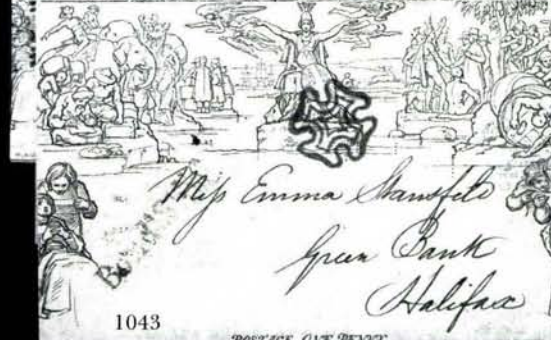 Miss Emma Stansfeld
Green Bank
Halifax
1043
POSTAGE ONE PENNY